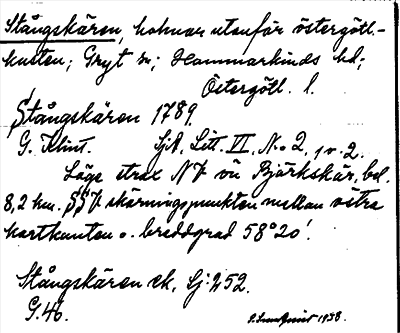 Stångskären, holmar utanför östergötl.-
kusten; Gryt sn; Hammarkinds hd;
Östergötl. l.
Stångskären 1789.
G. Klint. Sjk. Litt. VI, No 2, 1 v. 2.
Läge strax NV om Björkskär, bel.
8,2 km. SSV skärningspunkten mellan östra
kartkanten o. breddgrad 58°20'.
Stångskären sk, Sj: 252.
G. 40.
1938.